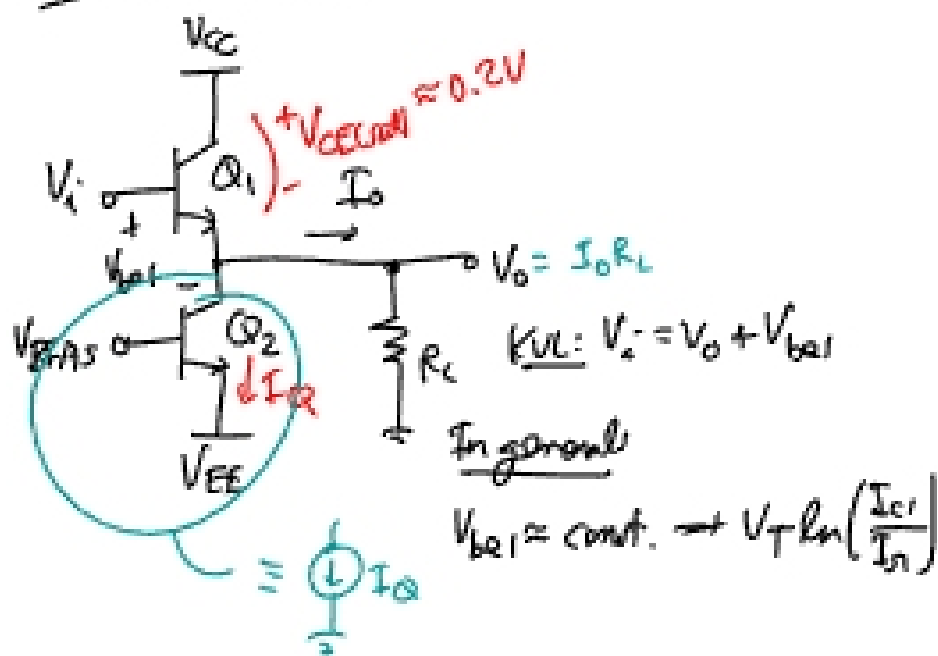 V_CC
+ V_CE(sat) ≈ 0.2V
-
V_i
Q_1
I_o
+
V_be1
-
V_o = I_o R_L
V_BIAS
Q_2
I_Q
R_L
KVL: V_i = V_o + V_be1
V_EE
In general
V_be1 ≈ const. → V_T ln(I_c1/I_s1)
≡
I_Q